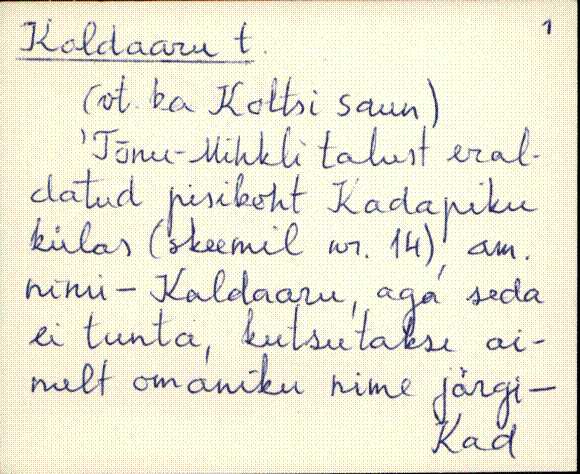 1
Kaldaaru t.
(vt. ka Koltsi saun)
'Tõnu-Mihkli talust eral-
datud pisikoht Kadapiku
külas (skeemil nr. 14), am.
nimi - Kaldaaru, aga seda
ei tunta, kutsutakse ai-
nult omaniku nime järgi -
Kad